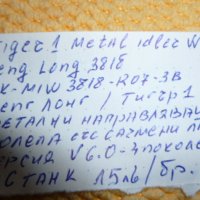 Tiger 1 Metal idler W
Heng Long 3818
K-MIW 3818-R07-3B
Хенг Лонг / Тигър 1
Метални направлява
колела със сачмени л
версия V6.0-3 покол
СТАНК 15лв/бр.